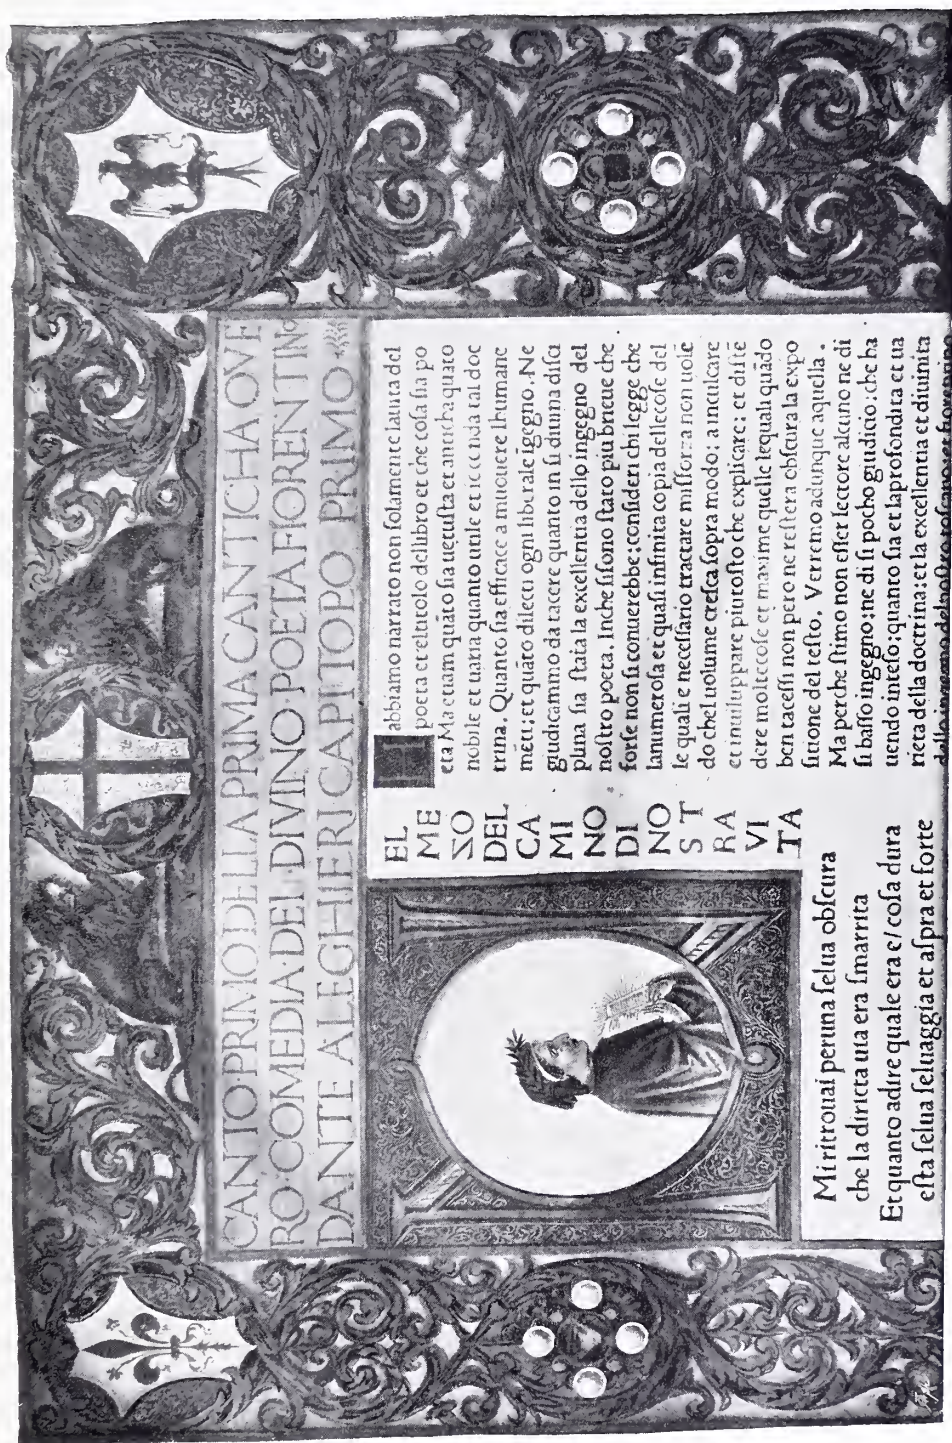 CANTO PRIMO DELLA PRIMA CANTICHA OVE
RO·COMEDIA DEL DIVINO POETA FIORENTINO
DANTE ALEGHIERI CAPITOPO PRIMO·
EL
ME
ZO
DEL
CA
MI
NO
DI
NO
S T
RA
VI
TA
Mi ritrouai per una ſelua obſcura
che la diricta uia era ſmarrita
Et quanto adire quale era e/ coſa dura
eſta ſelua ſeluaggia et aſpra et forte
H abbiamo narrato non ſolamente la uita del
poeta et el titolo del libro et che coſa ſia po
eta Ma etiam quāto ſia uetuſta et anticha quāto
nobile et uaria quanto utile et ioconda tal doc
trina. Quanto ſia efficace a muouere lhumane
mēti: et quāto dilecti ogni liberale igegno. Ne
giudicammo da tacere quanto in ſi diuina diſci
plina ſia ſtata la excellentia dello ingegno del
noſtro poeta. Inche ſi ſono ſtato piu brieue che
forſe non ſi conuerebbe: conſideri chi legge che
la numeroſa et quaſi infinita copia delle coſe del
le quali e neceſſario tractare miſforza non uolē
do chel uolume creſca ſopra modo: a inculcare
et inuiluppare piutoſto che explicare: et diſtē
dere molte coſe et maxime quelle lequali quādo
ben taceſſi non pero ne reſtera obſcura la expo
ſitione del teſto. Verremo adunque aquella.
Ma perche ſtimo non eſſer lectore alcuno ne di
ſi baſſo ingegno: ne di ſi pocho giudicio: che ha
uendo inteſo: quanto ſia et la profondita et ua
rieta della doctrina: et la excellentia et diuinita